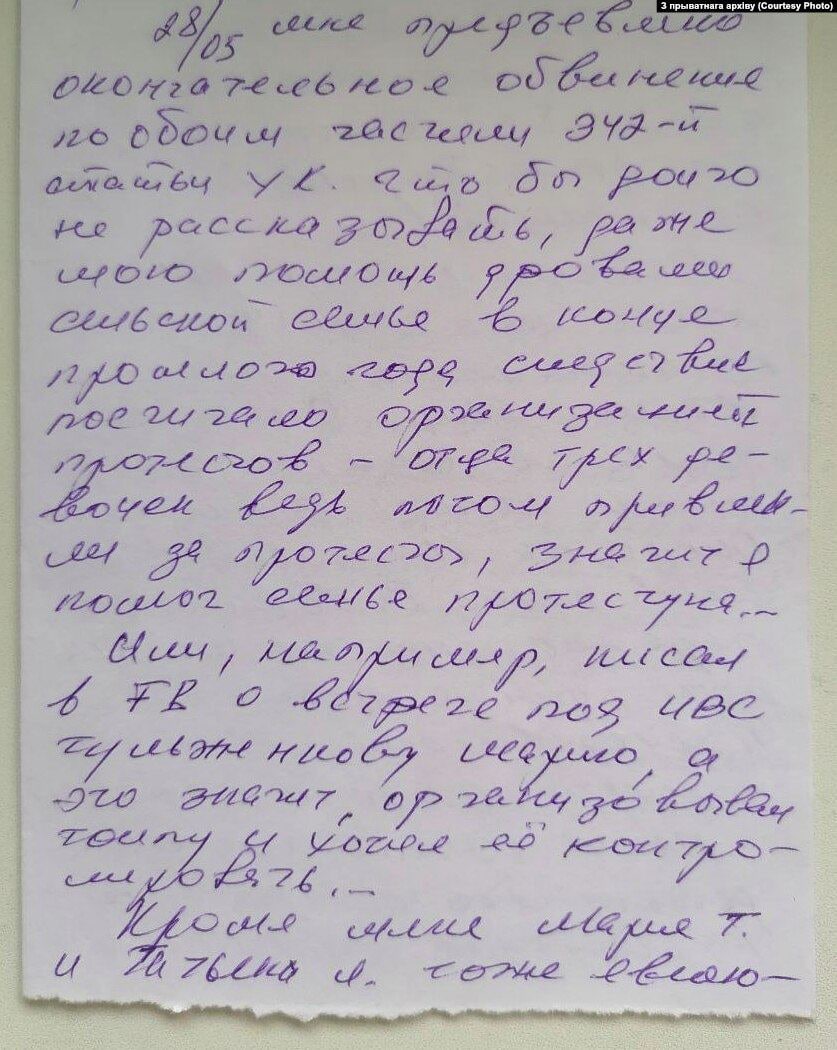 З прыватнага архіву (Courtesy Photo)
28/05 мне предъевлено
окончательное обвинение
по обоим частям 342-й
статьи УК. Что бы долго
не рассказывать, даже
мою помощь дровами
сельской семье в конце
прошлого года следствие
посчитало организацией
протестов – отца трех де-
вочек ведь потом привлек-
ли за протесты, значит я
помог семье протестуна...
Или, например, писал
в FB о встрече под ИВС
Тульженкову Марию, а
это значит, организовывал
толпу и хотел её контро-
лировать...
Кроме меня Мария Т.
и Татьяна Я. тоже являю-